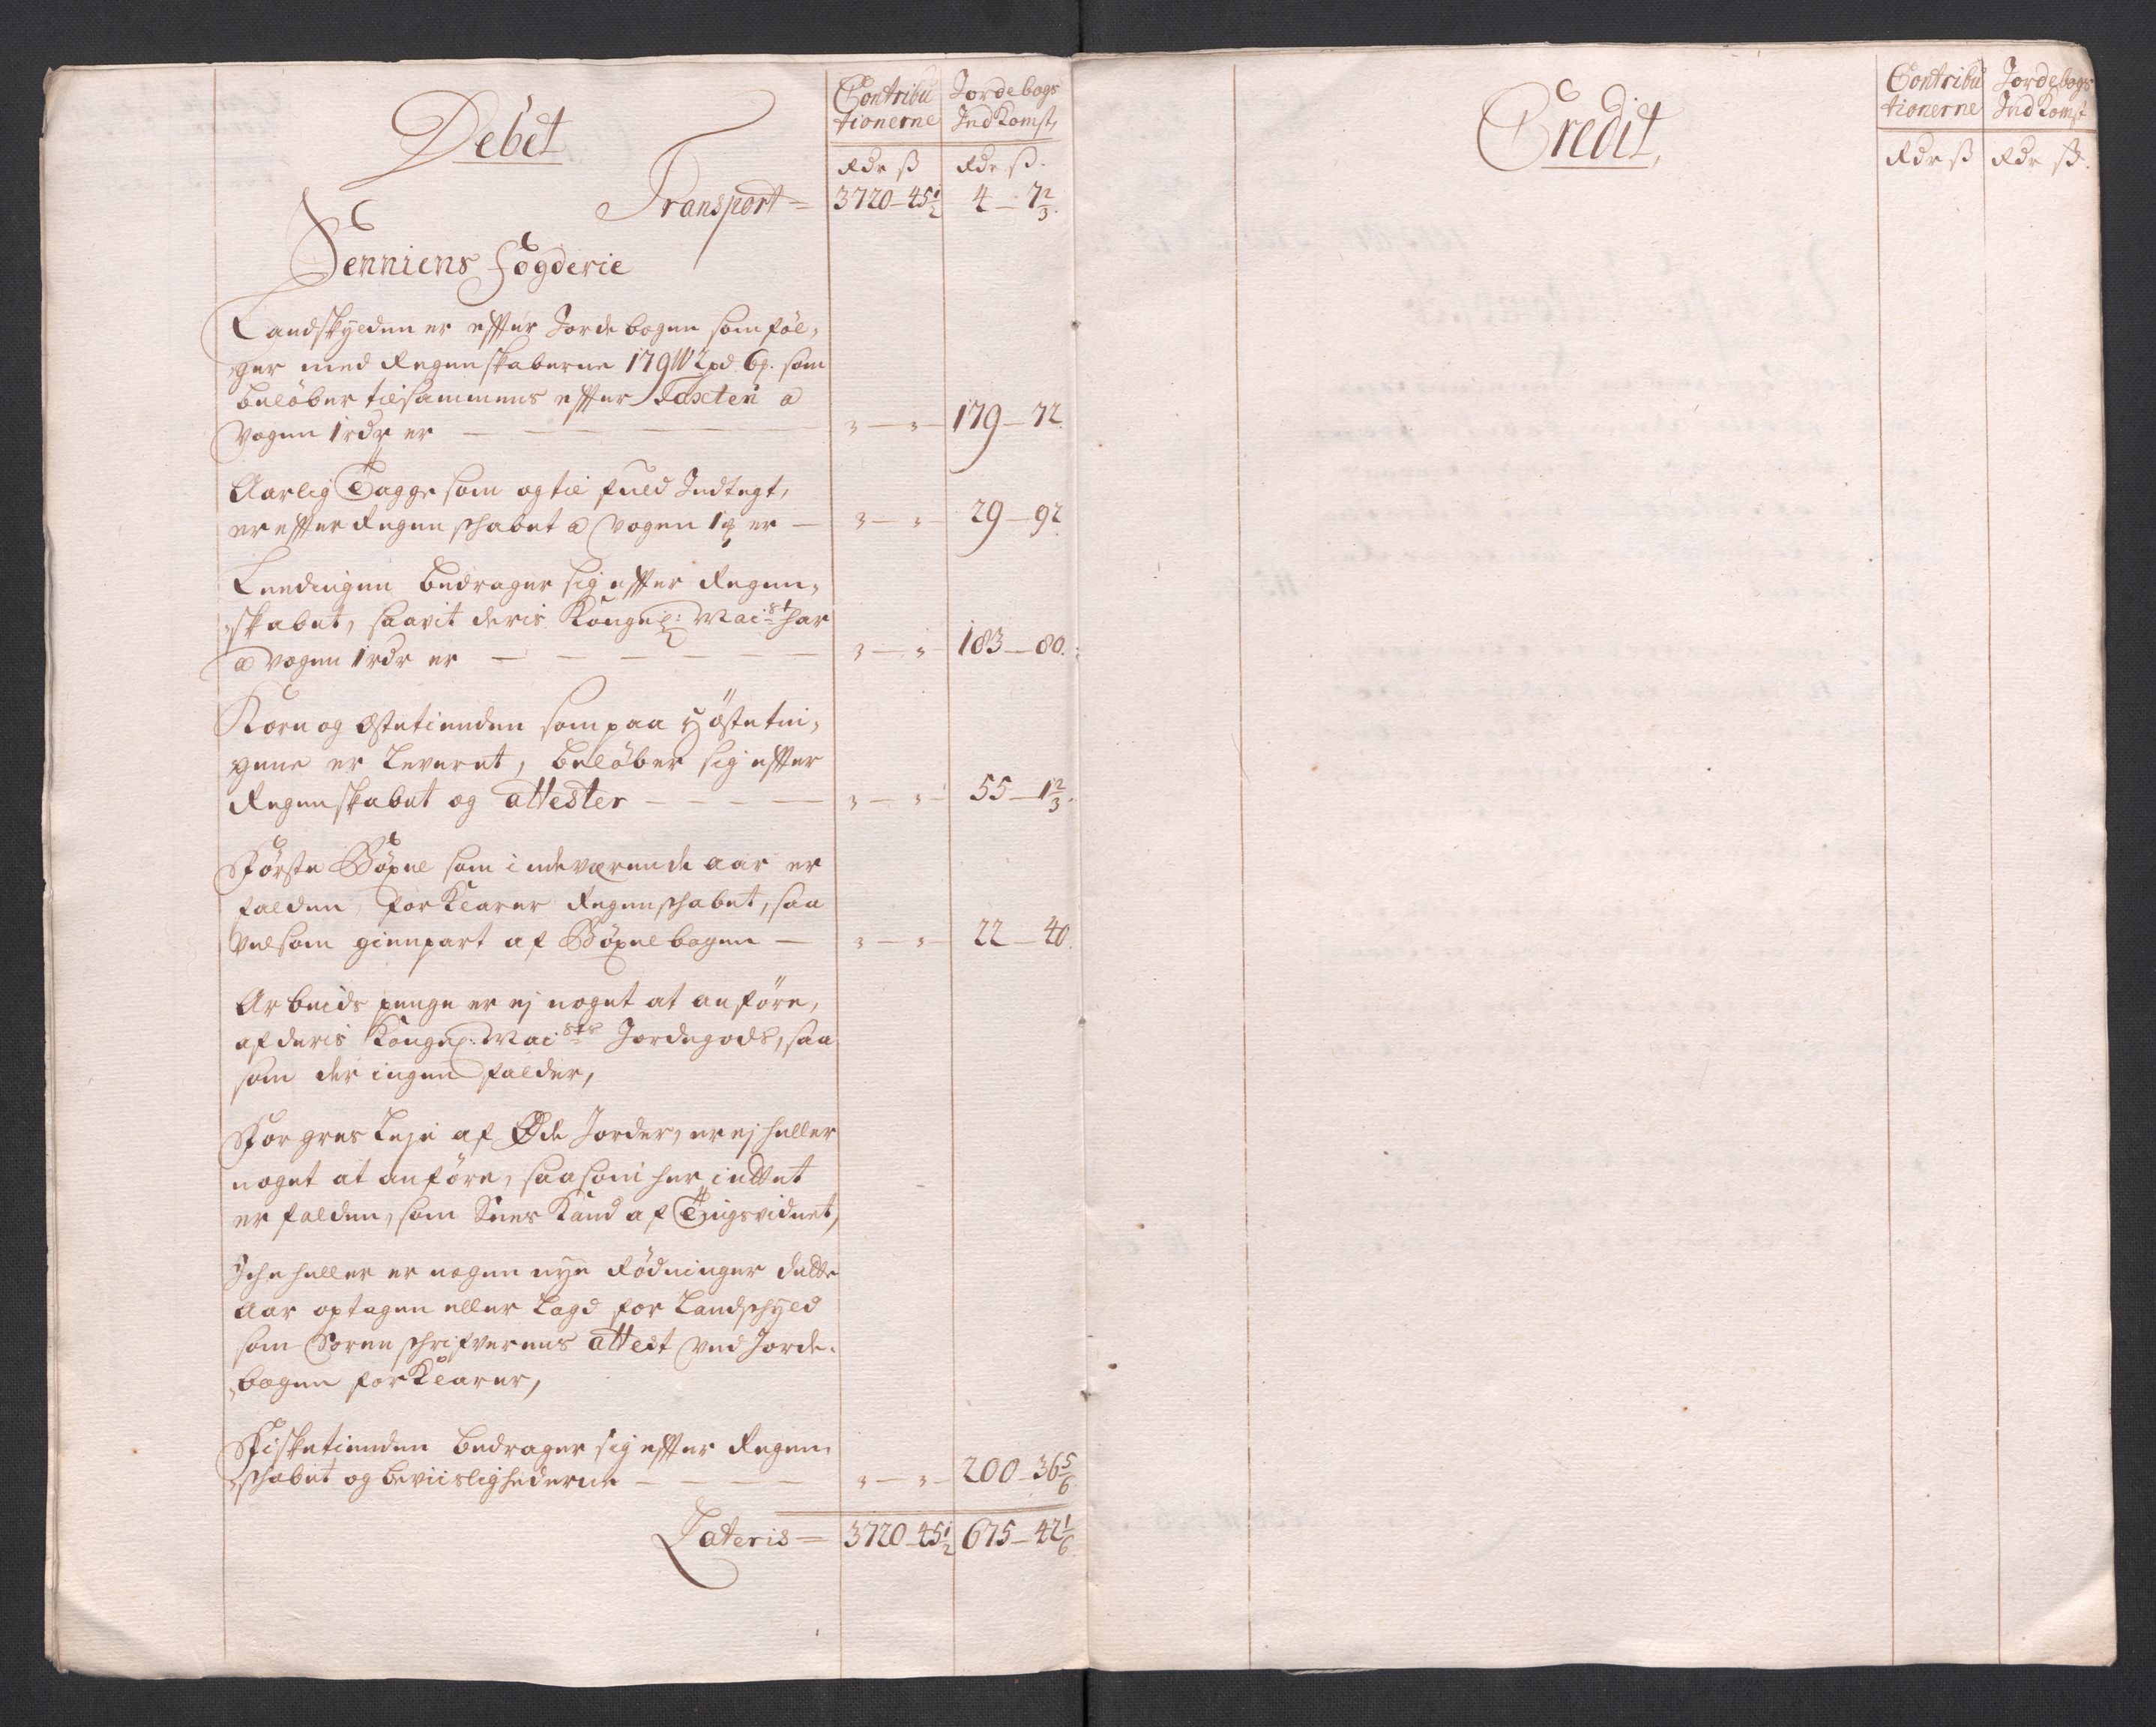 Debet
Contribu Jordebogs
tionerne IndKomst,
Rdr ß Rdr ß.
Transport = 3720-45½ 4-7⅔.
Senniens Fogderie
Landskylden er effter Jordebogen som føl,
ger med Regenskaberne 179W 2pd 6p. som
beløber tilsammens effter Taxten a
vogen 1rdr er — — — — „—„— 179—72.
Aarlig Tagge som og til fuld Indtegt,
er effter Regenschabet a vogen 1 er — „—„— 29—92.
Leedingen bedrager sig effter Regen,
„skabet, saavit deris Kongel: Mai:st har
a vogen 1rdr er — — — — — — „—„— 183—80.
Korn og Ostetienden som paa Høstetin,
gene er leveret, beløber sig effter
Regenskabet og attester — — — — „—„— 55—1⅔.
Første Bøxel som indeværende aar er
falden, forKlarer Regenschabet, saa
velsom gienpart af Bøxelbogen — „—„— 22—40.
Arbeids penge er ej noget at anføre,
af deris Kongel: Mai:sts Jordegods, saa
som der ingen falder,
For gres leje af Øde Jorder, er ej heller
noget at anføre, saasom her indtet
er falden, som Sees Kand af Tingsvidnet,
Iche heller er nogen nye Rødninger dette
Aar optagen eller lagd for landschyld
som Sorenschrifverens attest ved Jorde-
„bogen forKlarer,
Fisketienden bedrager sig effter Regen,
„schabet og beviislighederne — — — „—„— 200—36⅚
Lateris = 3720-45½ 675—42⅙
Credit,
Contribu Jordebogs
tionerne IndKomst
Rdr ß Rdr ß.